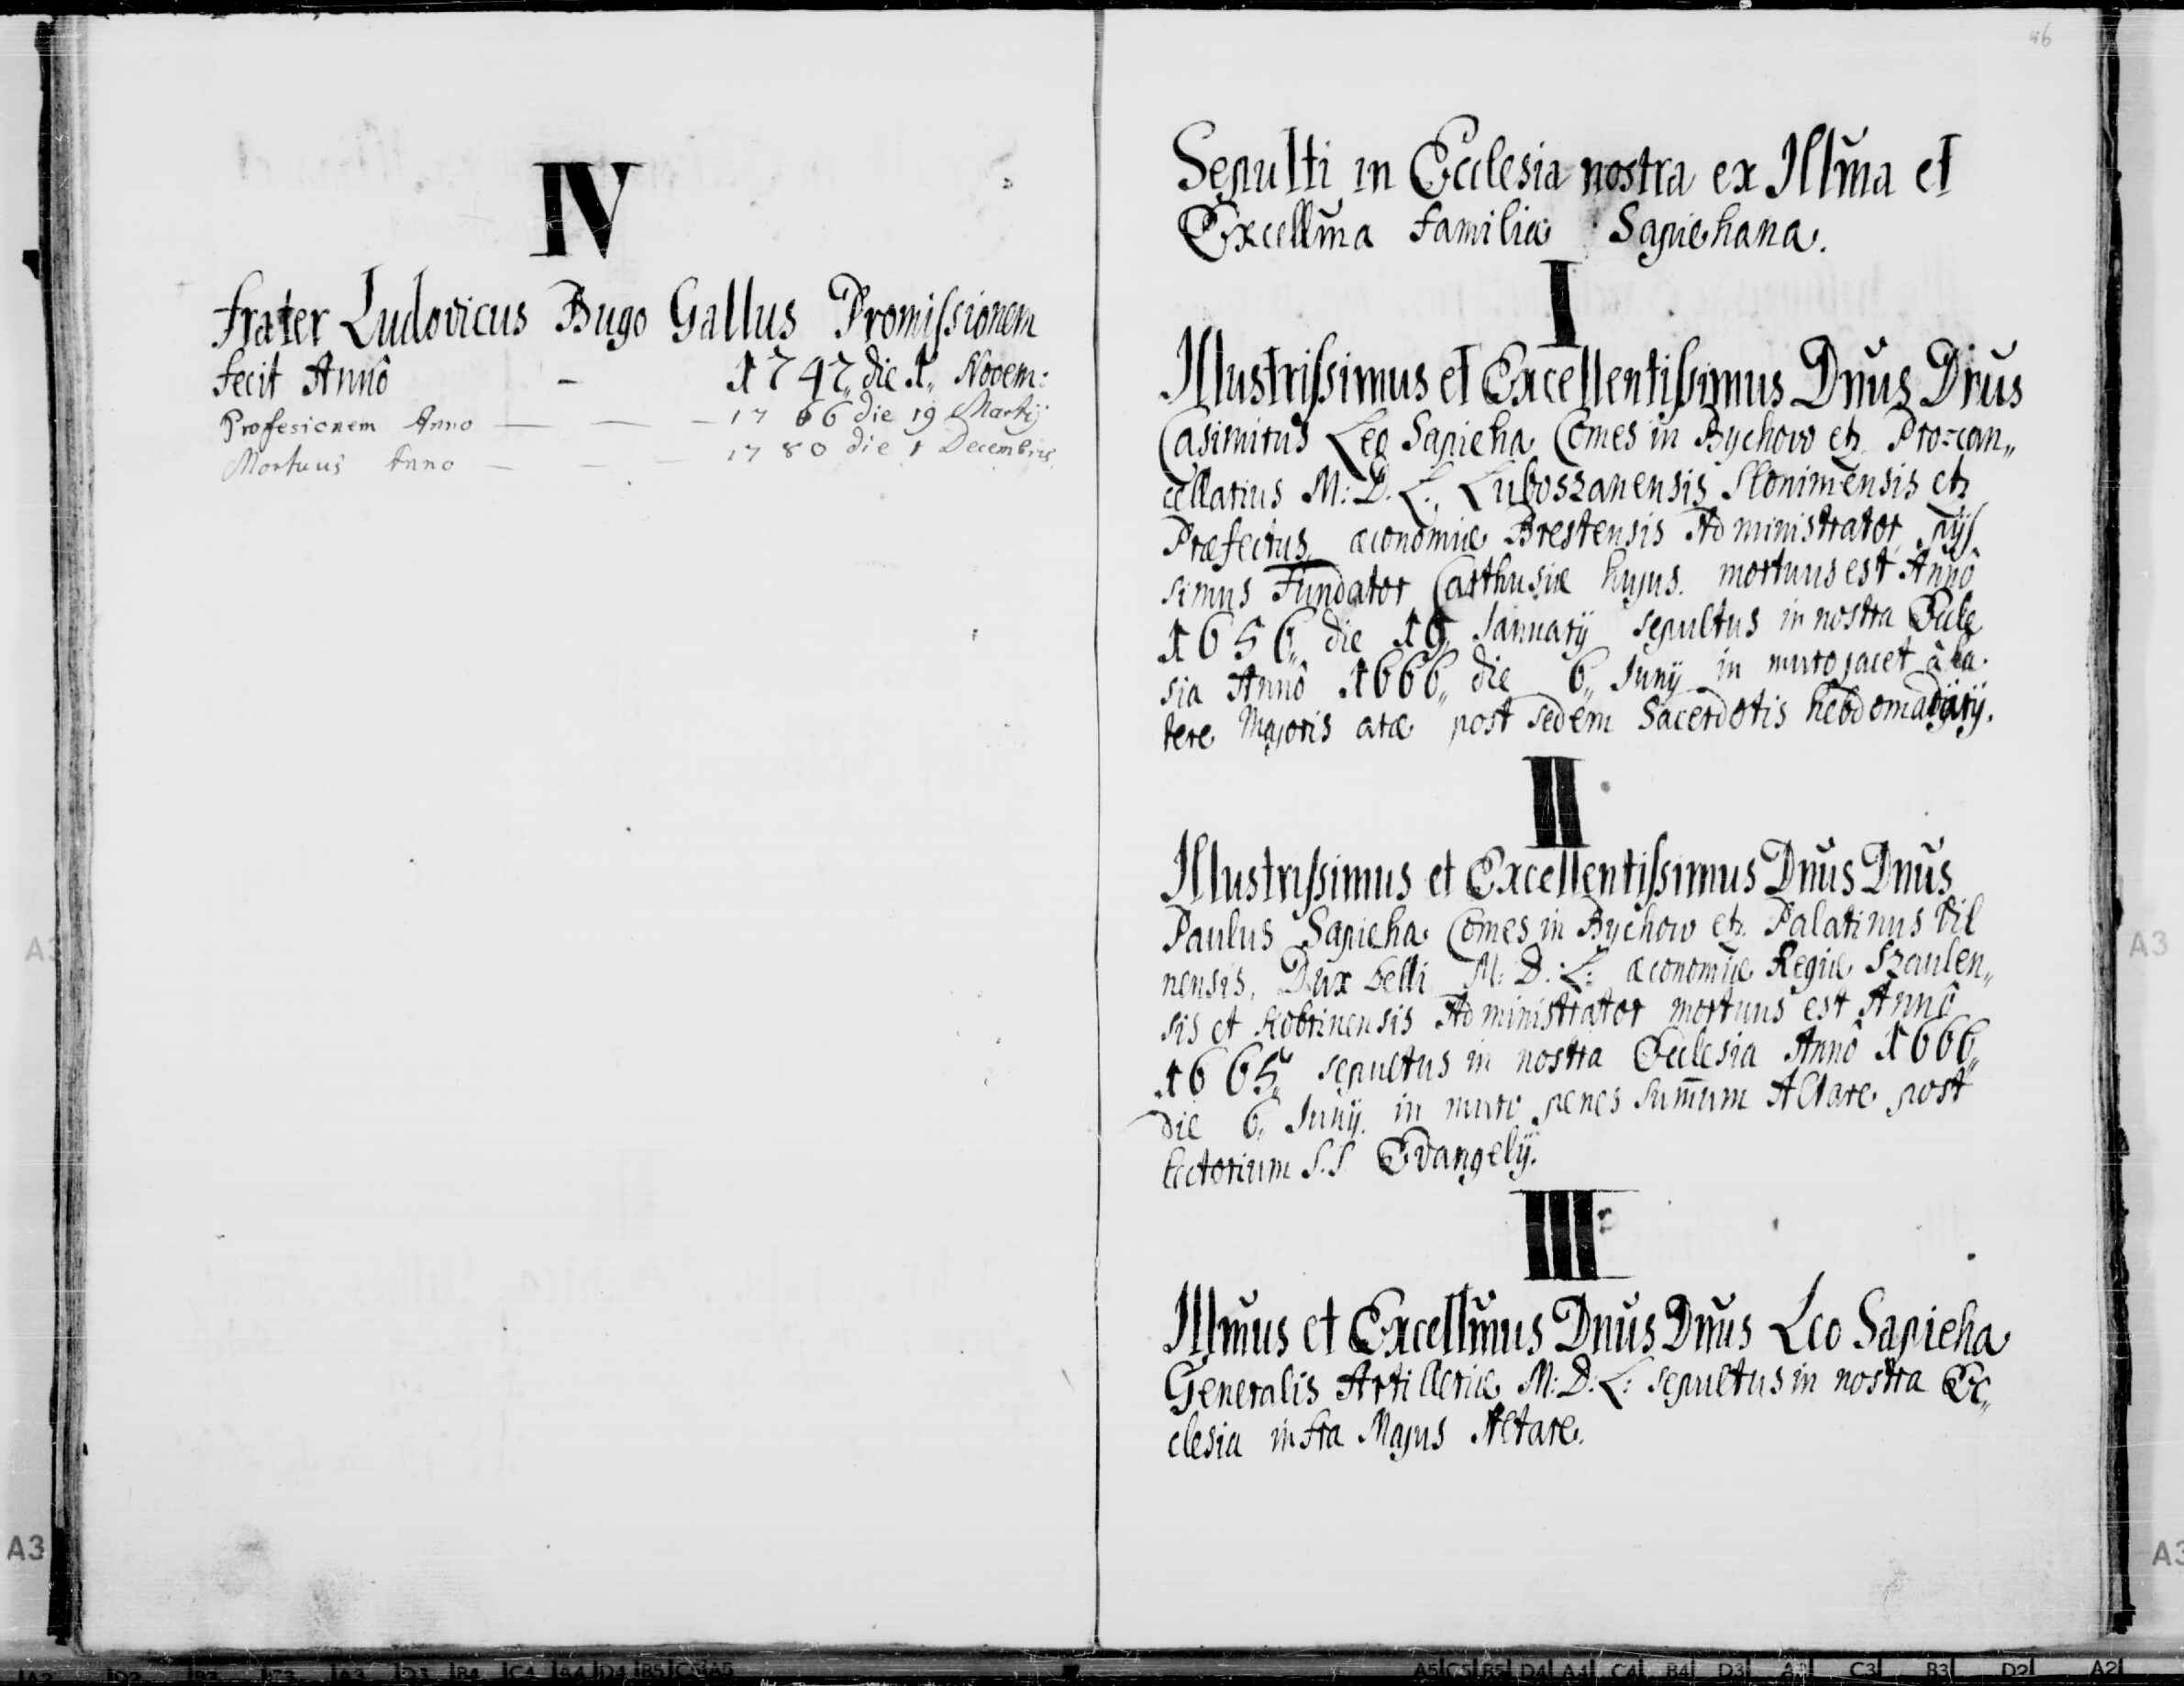 IV
Frater Ludovicus Bugo Gallus Promissionem
fecit Annô - 1747,, die 1,, Novem:
Profesionem Anno — — — 1766 die 19 Martij
Mortuus Anno — — — 1780 die 1 Decembris
46
Sepulti in Ecclesia nostra ex Illma et
Excellma Familia Sapiehana.
I
Illustrissimus et Excellentissimus Dnus Dnus
Casimirus Leo Sapieha Comes in Bychow etz. Pro=can,,
cellarius M: D. L. Luboszanensis Slonimensis etz
Præfectus, œconomiæ Brestensis Administrator pijs
simus Fundator Carthusiæ hujus. mortuus est Annô
1656,, die 19,, January sepultus in nostra Eccle
sia Annô 1666,, die 6,, Junij in muro jacet â la
tere Majoris aræ post sedem Sacerdotis hebdomadarij.
II
Illustrissimus et Excellentissimus Dnus Dnus
Paulus Sapieha Comes in Bychow etz. Palatinus Vil
nensis, Dux belli M: D: L: œconomiæ Regiæ Szaulen,,
sis et Kobrinensis Administrator mortuus est Annô
1665,, sepultus in nostra Ecclesia Annô 1666,,
die 6,, Junij. in muro penes summum Altare post
lectorium S.S Evangelij.
III
Illmus et Excellmus Dnus Dnus Leo Sapieha
Generalis Artilleriæ M: D: L: sepultus in nostra Ec,,
clesia infra Majus Altare.
A3
A3
A3
A3
A2 D2 B3 C3 A3 D3 B4 C4 A4 D4 B5 C5 A5
A5 C5 B5 D4 A4 C4 B4 D3 A3 C3 B3 D2 A2